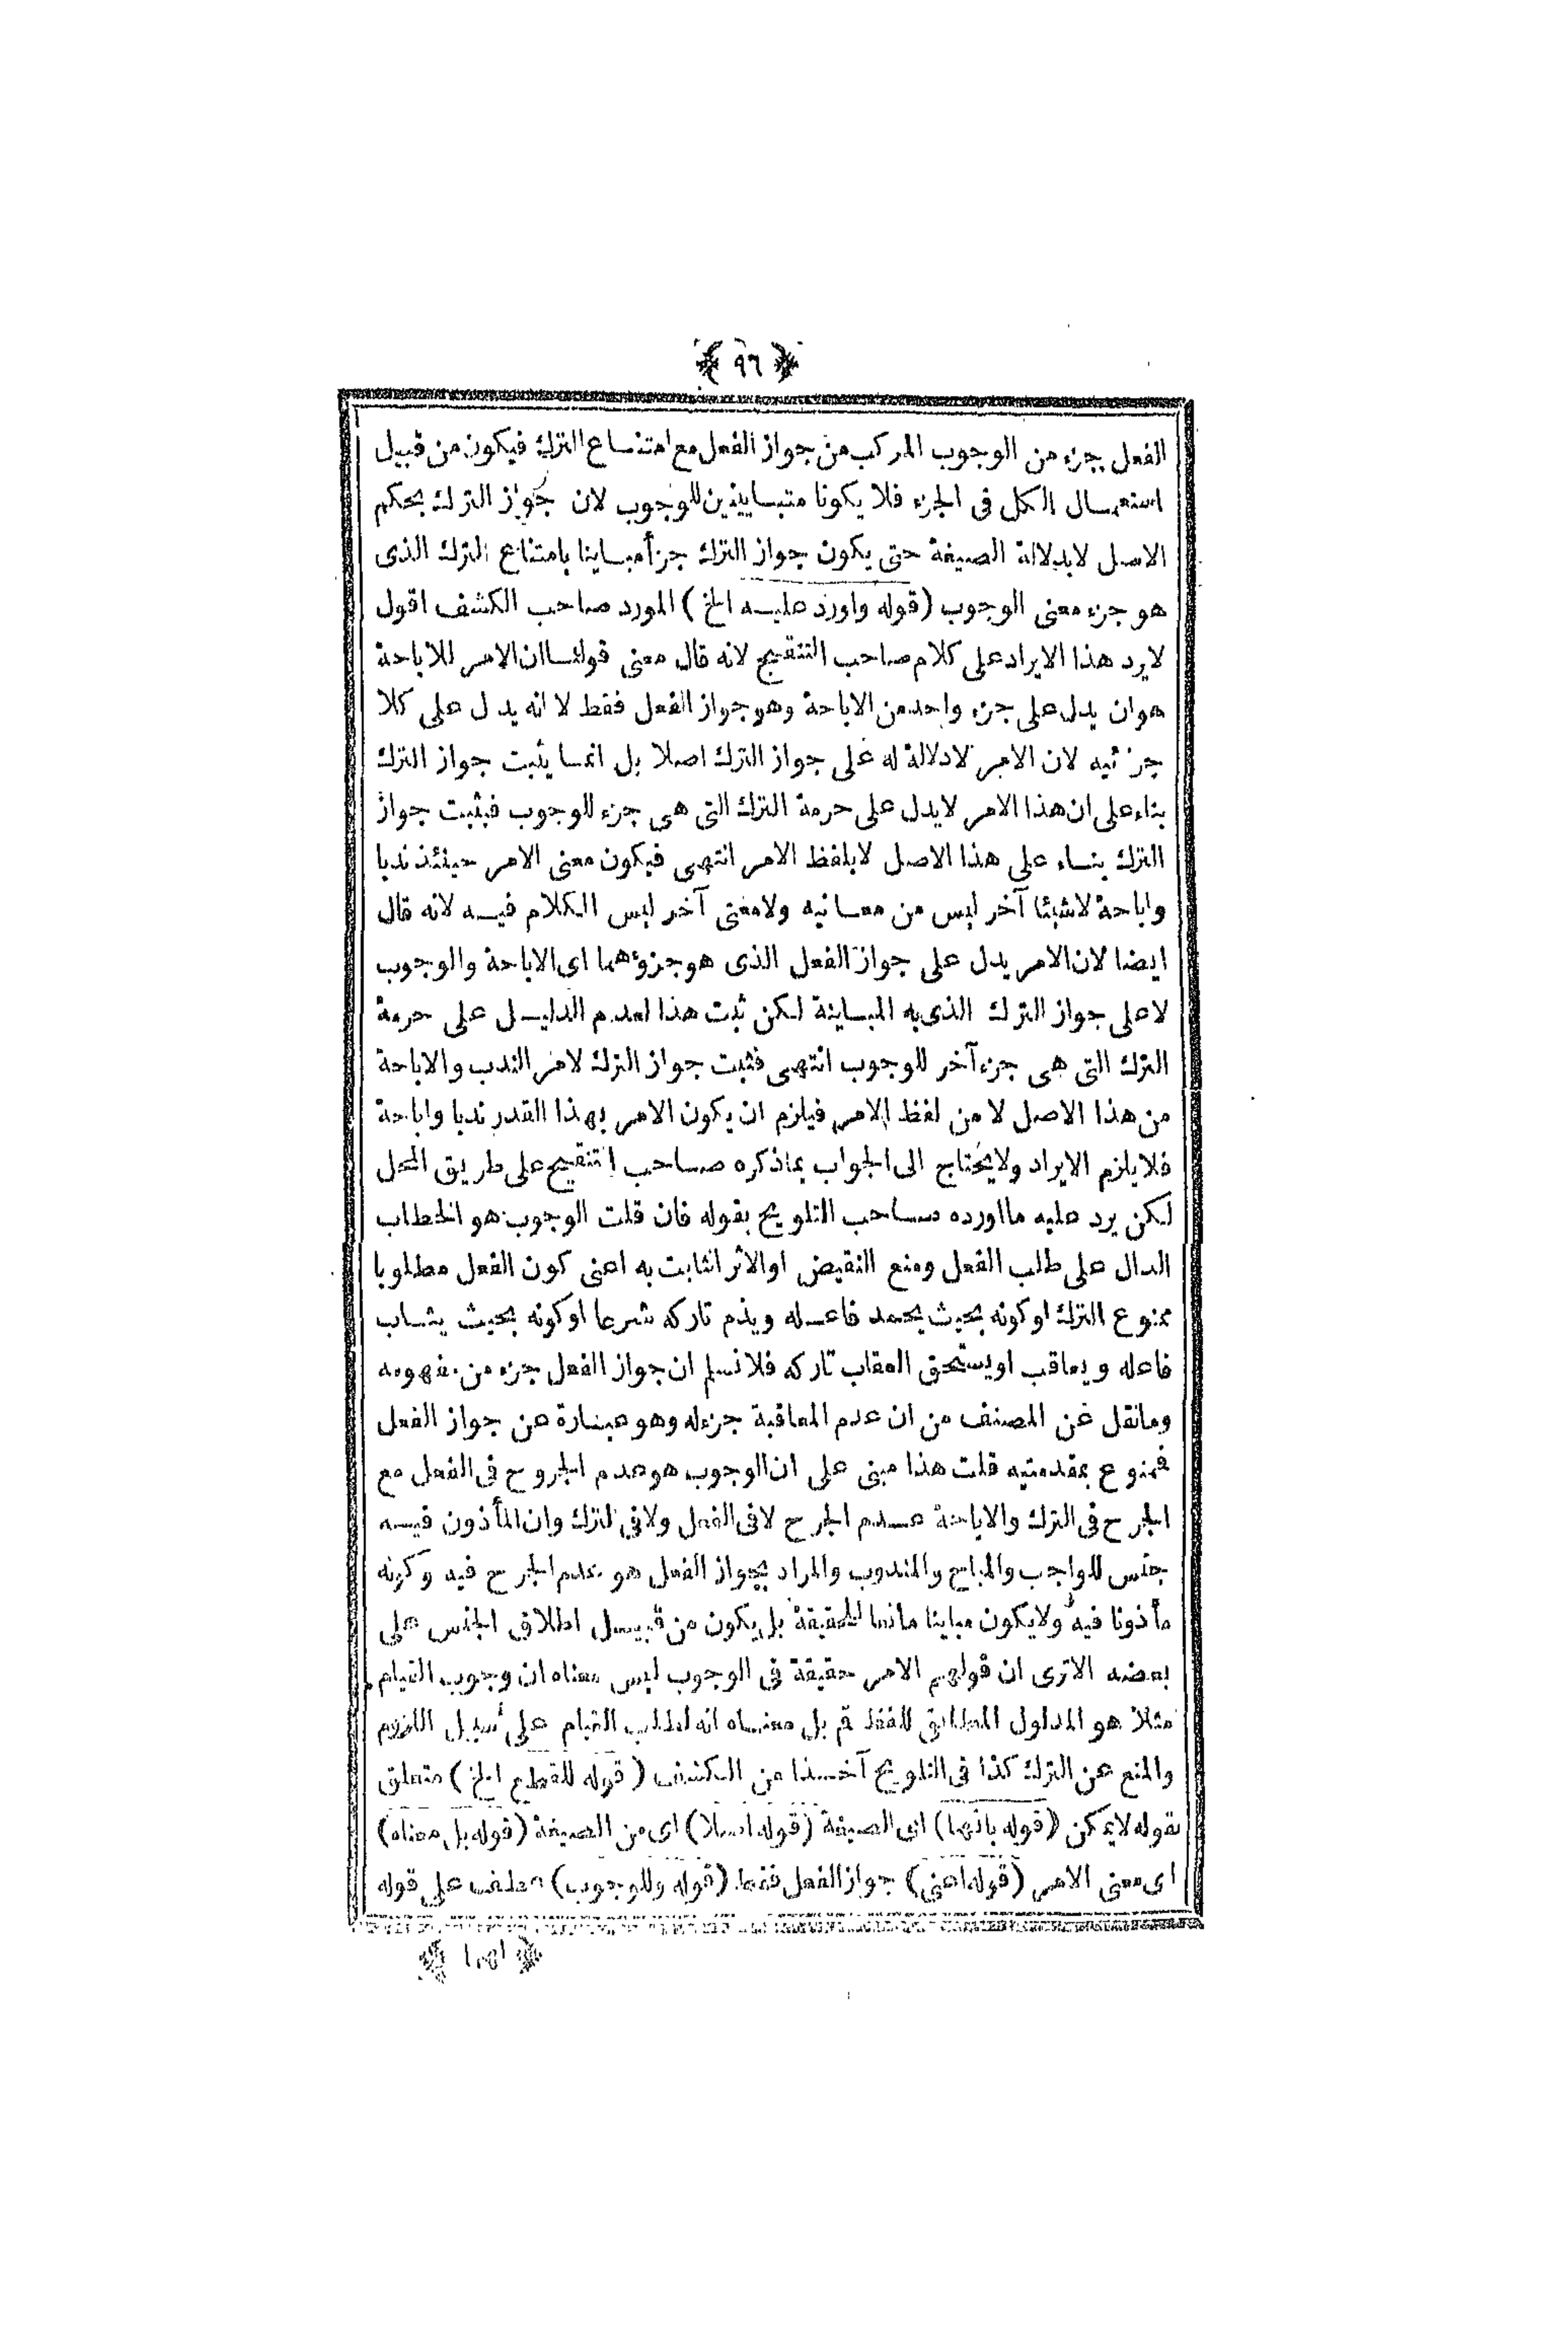 ﴿ ٩٦ ﴾
الفعل جزء من الوجوب المركب من جواز الفعل مع امتناع الترك فيكون من قبيل
استعمال الكل فى الجزء فلا يكونا متباينين للوجوب لان جواز الترك بحكم
الاصل لا بدلالة الصيغة حتى يكون جواز الترك جزأ مباينا بامتناع الترك الذى
هو جزء معنى الوجوب ( قوله واورد عليه الخ ) المورد صاحب الكشف اقول
لا يرد هذا الايراد على كلام صاحب التنقيح لانه قال معنى قولنا ان الامر للاباحة
هو ان يدل على جزء واحد من الاباحة وهو جواز الفعل فقط لا انه يدل على كلا
جزئيه لان الامر لادلالة له على جواز الترك اصلا بل انما يثبت جواز الترك
بناء على ان هذا الامر لايدل على حرمة الترك التى هى جزء للوجوب فيثبت جواز
الترك بناء على هذا الاصل لابلفظ الامر انتهى فيكون معنى الامر حينئذ ندبا
واباحة لاشيئا آخر ليس من معانيه ولامعنى آخر ليس الكلام فيه لانه قال
ايضا لان الامر يدل على جواز الفعل الذى هو جزؤهما اى الاباحة والوجوب
لا على جواز الترك الذى به المباينة لكن ثبت هذا لعدم الدليل على حرمة
الترك التى هى جزء آخر للوجوب انتهى فثبت جواز الترك لامر الندب والاباحة
من هذا الاصل لا من لفظ الامر فيلزم ان يكون الامر بهذا القدر ندبا واباحة
فلا يلزم الايراد ولايحتاج الى الجواب بماذكره صاحب التنقيح على طريق الحل
لكن يرد عليه ما اورده صاحب التلويح بقوله فان قلت الوجوب هو الخطاب
الدال على طلب الفعل ومنع النقيض او الاثر الثابت به اعنى كون الفعل مطلوبا
ممنوع الترك او كونه بحيث يحمد فاعله ويذم تاركه شرعا او كونه بحيث يثاب
فاعله ويعاقب او يستحق العقاب تاركه فلانسلم ان جواز الفعل جزء من مفهومه
ومانقل عن المصنف من ان عدم المعاقبة جزءله وهو عبارة عن جواز الفعل
فممنوع بمقدمتيه قلت هذا مبنى على ان الوجوب هو عدم الجروح فى الفعل مع
الجرح فى الترك والاباحة عدم الجرح لا فى الفعل ولا فى الترك وان المأذون فيه
جنس للواجب والمباح والمندوب والمراد بجواز الفعل هو عدم الجرح فيه وكونه
مأذونا فيه ولايكون مباينا مانعا للحقيقة بل يكون من قبيل اطلاق الجنس على
بعضه الاترى ان قولهم الامر حقيقة فى الوجوب ليس معناه ان وجوب القيام
مثلا هو المدلول المطابق للفظ قم بل معناه انه لطلب القيام على سبيل اللزوم
والمنع عن الترك كذا فى التلويح آخذا من الكشف ( قوله للقطع الخ ) متعلق
بقوله لايمكن ( قوله بانها ) اى الصيغة ( قوله اصلا ) اى من الصيغة ( قوله بل معناه )
اى معنى الامر ( قوله اعنى ) جواز الفعل فقط ( قوله وللوجوب ) عطف على قوله